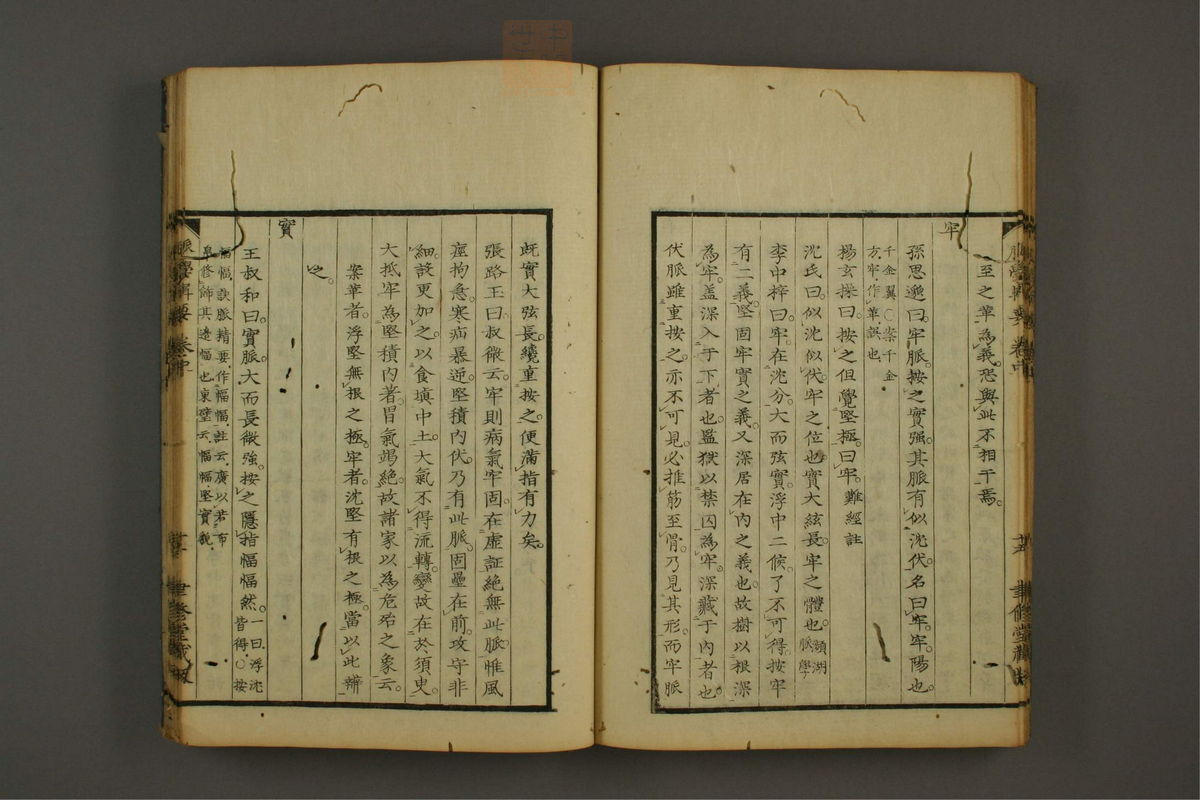 至之革爲義恐與此不相干焉。
牢
孫思邈曰。牢脈。按之實强。其脈有似沈伏。名曰牢。牢陽也。
千金翼○案千金
方牢作革誤也
楊玄操曰。按之但覺堅極。曰牢。難經註
沈氏曰。似沈似伏。牢之位也。實大弦長。牢之體也。瀕湖
脈學
李中梓曰。牢在沈分。大而弦實。浮中二候。了不可得。按牢
有二義。堅固牢實之義。又深居在內之義也。故樹以根深
爲牢。盖深入于下者也。監獄以禁囚爲牢。深藏于內者也。
伏脈雖重按之。亦不可見。必推筋至骨。乃見其形。而牢脈
既實大弦長。纔重按之。便滿指有力矣。
張路玉曰。叔微云。牢則病氣牢固。在虛証絶無此脈。惟風
痙拘急。寒疝暴逆。堅積內伏。乃有此脈。固壘在前。攻守非
細。設更加之以食塡中土。大氣不得流轉。變故在於須臾。
大抵牢爲堅積內著。胃氣竭絶。故諸家以爲危殆之象云。
案革者浮堅無根之極。牢者沈堅有根之極。當以此辨
之。
實
王叔和曰。實脈。大而長微强。按之隱指愊愊然。一曰浮沈
皆得○按
愊愊訣脈精要作幅幅註云廣以若布
帛修飾其邊幅也東壁云愊愊堅實貌
脈學輯要 卷中
聿修堂藏版
脈學輯要 卷中
聿修堂藏版